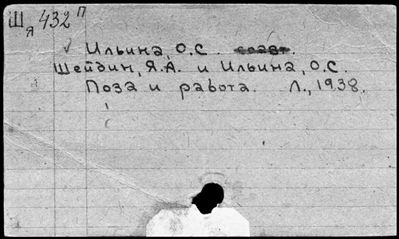 Шя 432 п
√ Ильина, О.С. соавт.
Шейдин, Я.А. и Ильина, О.С.
Поза и работа. Л., 1938.